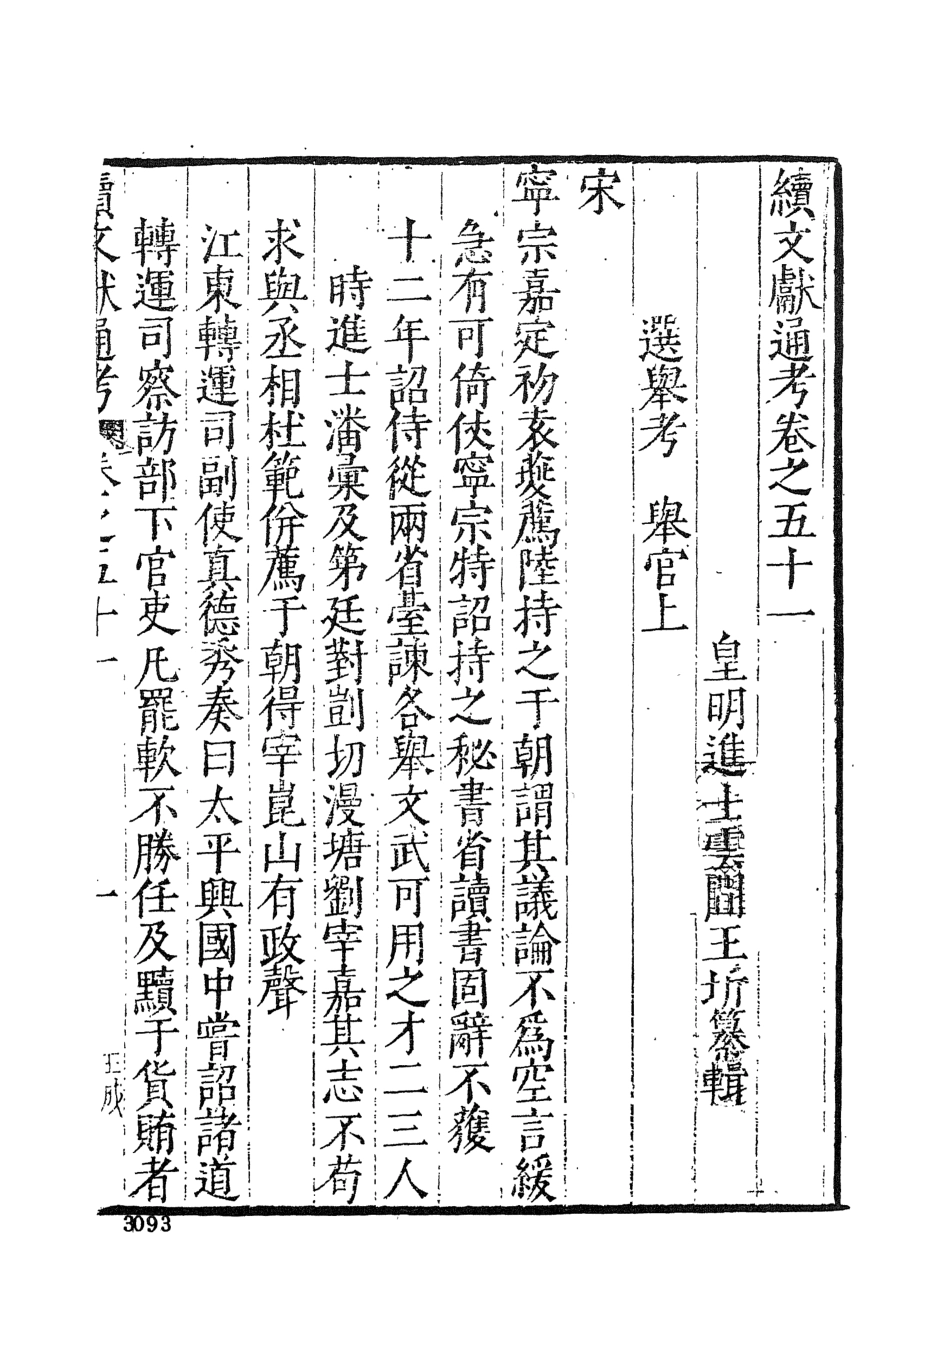 續文獻通考卷之五十一
皇明進士雲間王圻纂輯
選舉考　舉官上
宋
寧宗嘉定初袁燮薦陸持之于朝謂其議論不爲空言緩
急有可倚仗寧宗特詔持之秘書省讀書固辭不獲
十二年詔侍從兩省臺諫各舉文武可用之才二三人
時進士潘彙及第廷對剴切漫塘劉宰嘉其志不苟
求與丞相杜範併薦于朝得宰崑山有政聲
江東轉運司副使真德秀奏曰太平興國中嘗詔諸道
轉運司察訪部下官吏凡罷軟不勝任及黷于貨賄者
續文獻通考　卷之五十一　一　王成
3093